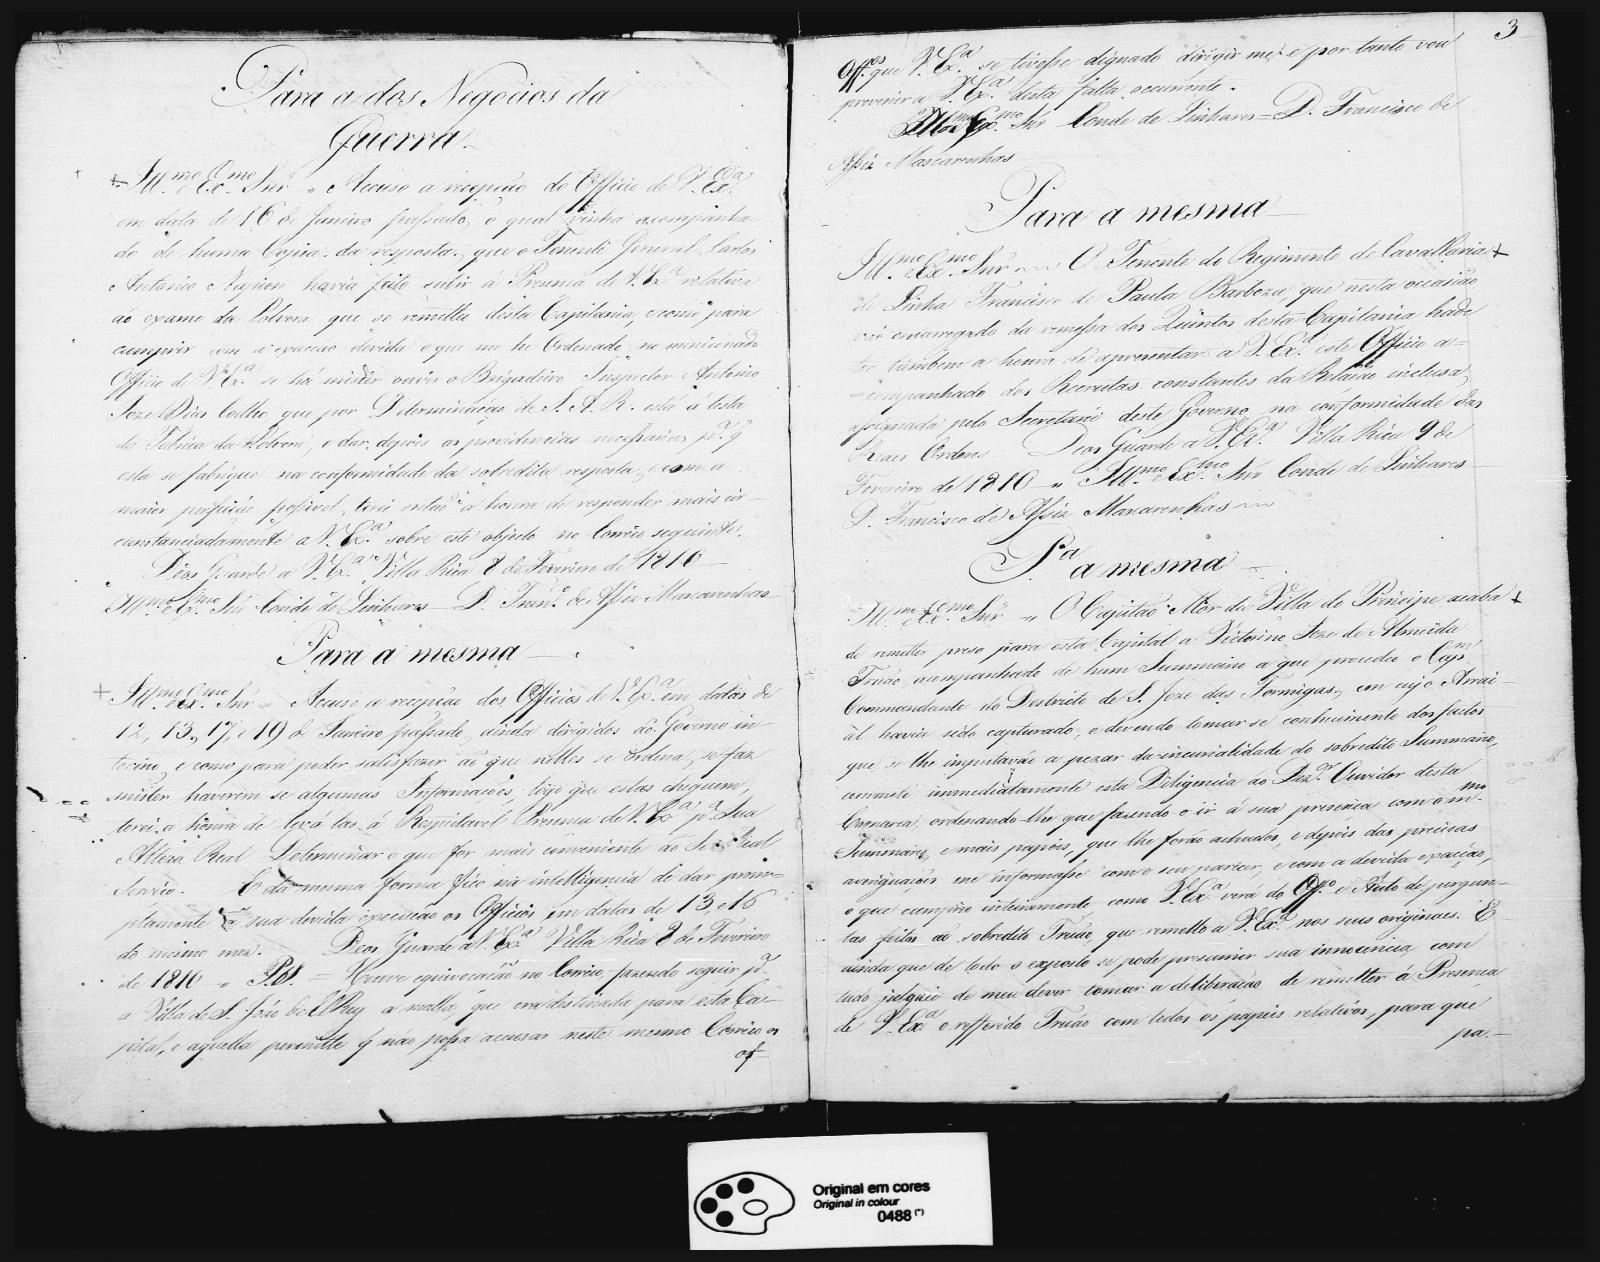 Para a dos Negocios da
Guerra.
Ill.mo e Ex.mo Snr " Accuso a recepção do Officio de V. Ex.a
em data de 16 de Janeiro passado, o qual vinha acompanha-
do de huma Copia da resposta, que o Tenente General Carlos
Antonio Napion havia feito subir á Prezença de V. Ex.a relativa
ao exame da Polvora que se remetteu desta Capitania, e como para
cumprir com a exacção devida o que me he Ordenado no mencionado
Officio de V. Ex.a se há mister ouvir o Brigadeiro Inspector Antonio
Joze Dias Coelho que por Determinação de S. A. R. está á testa
da Fabrica da Polvora, e dar depois as providencias necessarias p.a q
esta se fabrique na conformidade da sobredita resposta, e com a
maior perfeição possivel, terei então a honra de responder mais cir-
cunstanciadamente a V. Ex.a sobre este objecto no Correio seguinte.
Deos Guarde a V. Ex.a Villa Rica 8 de Fevereiro de 1810
Ill.mo e Ex.mo Snr Conde de Linhares D. Fran.co de Assiz Mascarenhas
Para a mesma
Ill.mo e Ex.mo Snr " Accuso a recepção dos Officios de V. Ex.a em datas de
12, 13, 17, e 19 de Janeiro passado, ainda dirigidos ao Governo in-
terino, e como para poder satisfazer ao que nelles se ordena, se faz
mister haverem se algumas Informações, logo que estas cheguem,
terei a honra de levá-las á Respeitavel Prezença de V. Ex.a p.a Sua
Alteza Real Determinar o que for mais conveniente ao Seo Real
Serviço. E da mesma forma fico na intelligencia de dar prom-
ptamente a sua devida execução os Officios em datas de 13, e 15
do mesmo mez. Deos Guarde a V. Ex.a Villa Rica 8 de Fevereiro
de 1810 " P.S. = Houve equivocação no Correio fazendo seguir p.a
a Villa de S. João de El Rey a malla, que era destinada para esta Ca-
pital, e aquella permitte q não possa accusar neste mesmo Correio os
of
3
Off.os que V. Ex.a se tivesse dignado dirigir me, e por tanto vou
prevenir a V. Ex.a desta falta occurrente.
Ill.mo e Ex.mo Snr Conde de Linhares = D. Francisco de
Assiz Mascarenhas
Para a mesma
Ill.mo e Ex.mo Snr O Tenente do Regimento de Cavallaria
de Linha Francisco de Paula Barboza, que nesta occasião
vai encarregado da remessa dos Quintos desta Capitania hade
ter tambem a honra de apresentar a V. Ex.a este Officio a-
companhado dos Recrutas constantes da Relação inclusa,
assignada pelo Secretario deste Governo na conformidade das
Reaes Ordens Deos Guarde a V. Ex.a Villa Rica 9 de
Fevereiro de 1810 " Ill.mo Ex.mo Snr Conde de Linhares
D. Francisco de Assiz Mascarenhas
P.a a mesma
Ill.mo e Ex.mo Snr " O Capitão Mór da Villa do Principe acaba
de remetter prezo para esta Capital a Victorino Joze de Almeida
Truão, acompanhado de hum Summario a que procedeo o Cap.m
Commandante do Destricto de S. Joze das Formigas, em cujo Arrai-
al havia sido capturado, e devendo tomar-se conhecimento dos factos
que se lhe imputavão a pezar da incurialidade do sobredito Summario,
cometti immediatamente esta Diligencia ao Dez.or Ouvidor desta
Comarca, ordenando-lhe que fazendo o ir á sua presença com o m.mo
Summario, e mais papeis, que lhe forão achados, e depois das precisas
averiguações me informasse com o seu parecer, e com a devida exacção,
o que cumprio inteiramente como V. Ex.a verá do Off.o e Auto de pergun-
tas feitas ao sobredito Truão, que remetto a V. Ex.a nos seus originaes. E
ainda que de todo o exposto se pode presumir sua innocencia, com
tudo julguei do meu dever tomar a deliberação de remetter á Presença
de V. Ex.a o refferido Truão com todos os papeis relativos, para que
pa-
Original em cores
Original in colour
0488 (*)